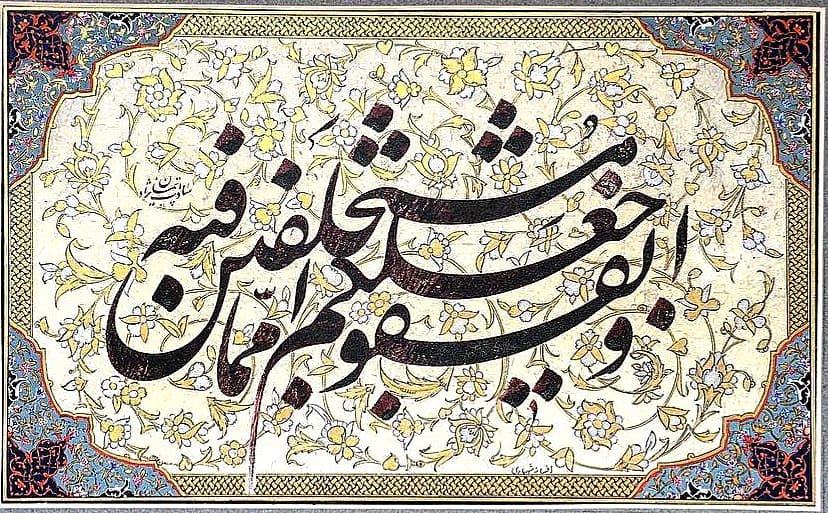 و انفقوا مما جعلکم مستخلفین فیه